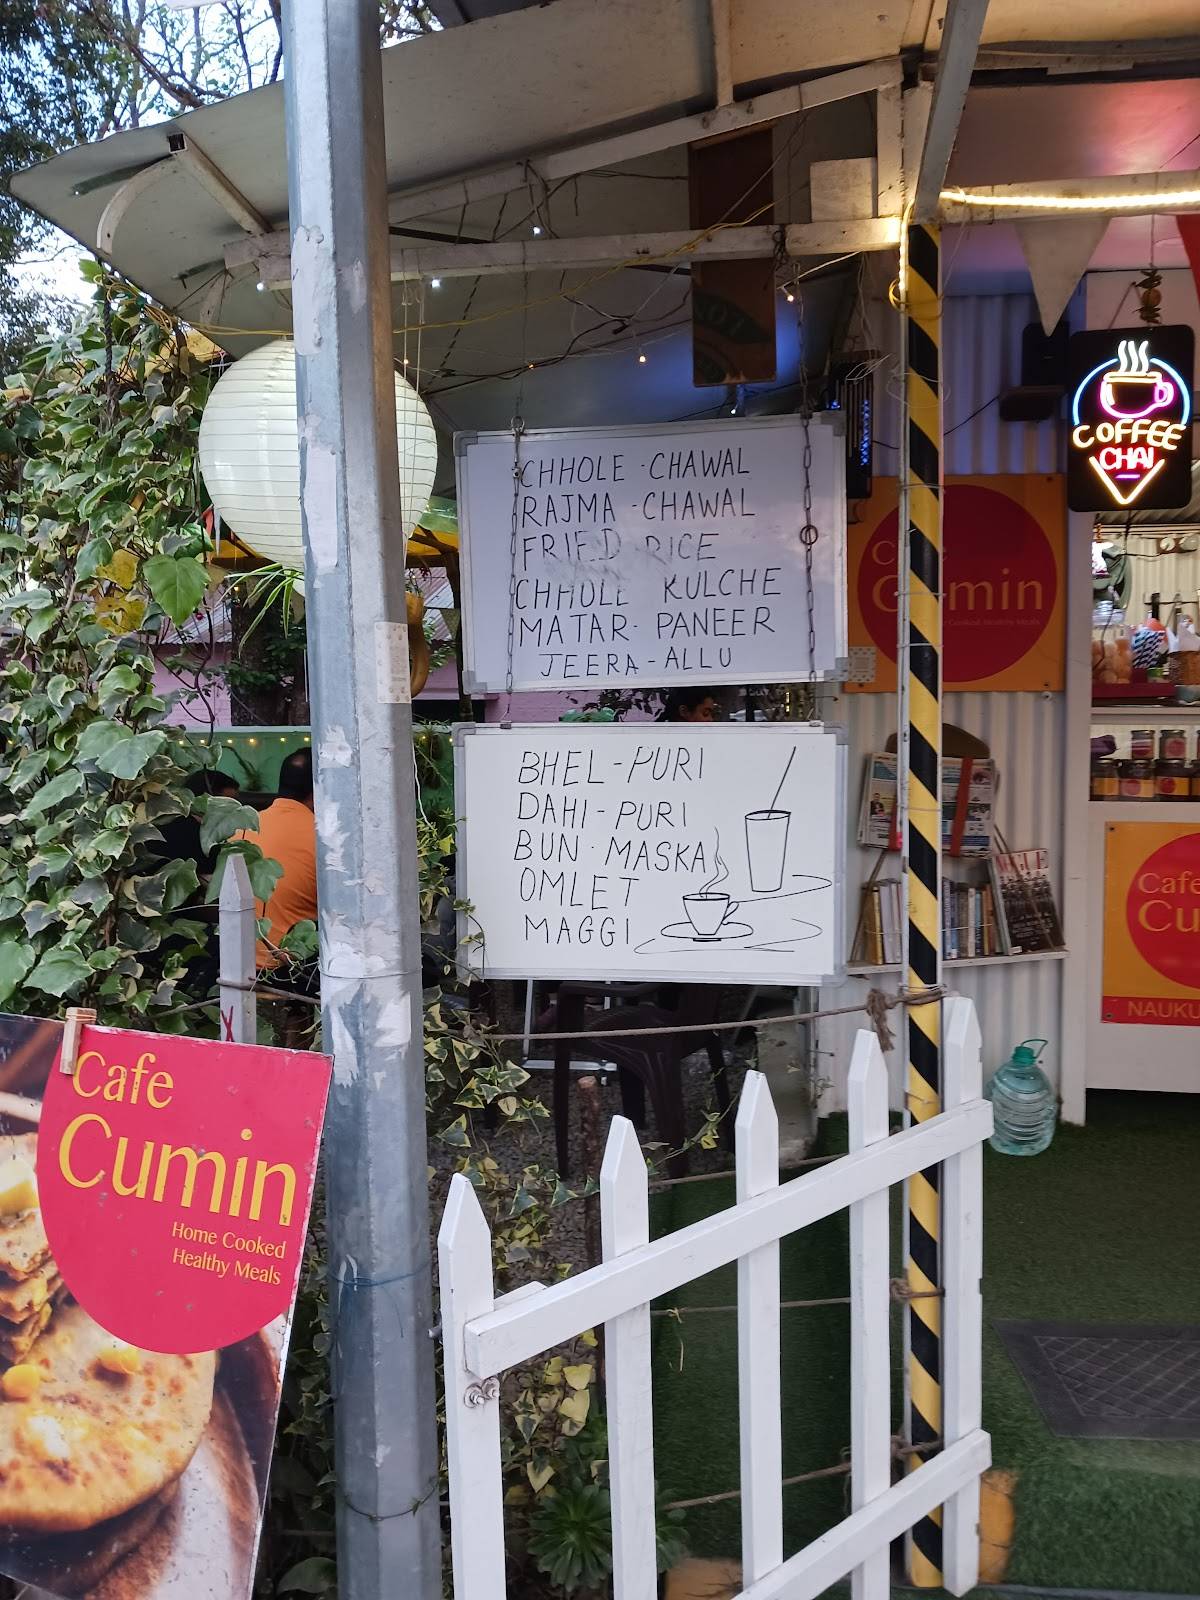 CHHOLE - CHAWAL
RAJMA - CHAWAL
FRIED RICE
CHHOLE KULCHE
MATAR - PANEER
JEERA - ALLU
BHEL - PURI
DAHI - PURI
BUN - MASKA
OMLET
MAGGI
COFFEE
CHAI
Cumin
Cooked Healthy Meals
Cafe
NAUKU
Cafe
Cumin
Home Cooked
Healthy Meals